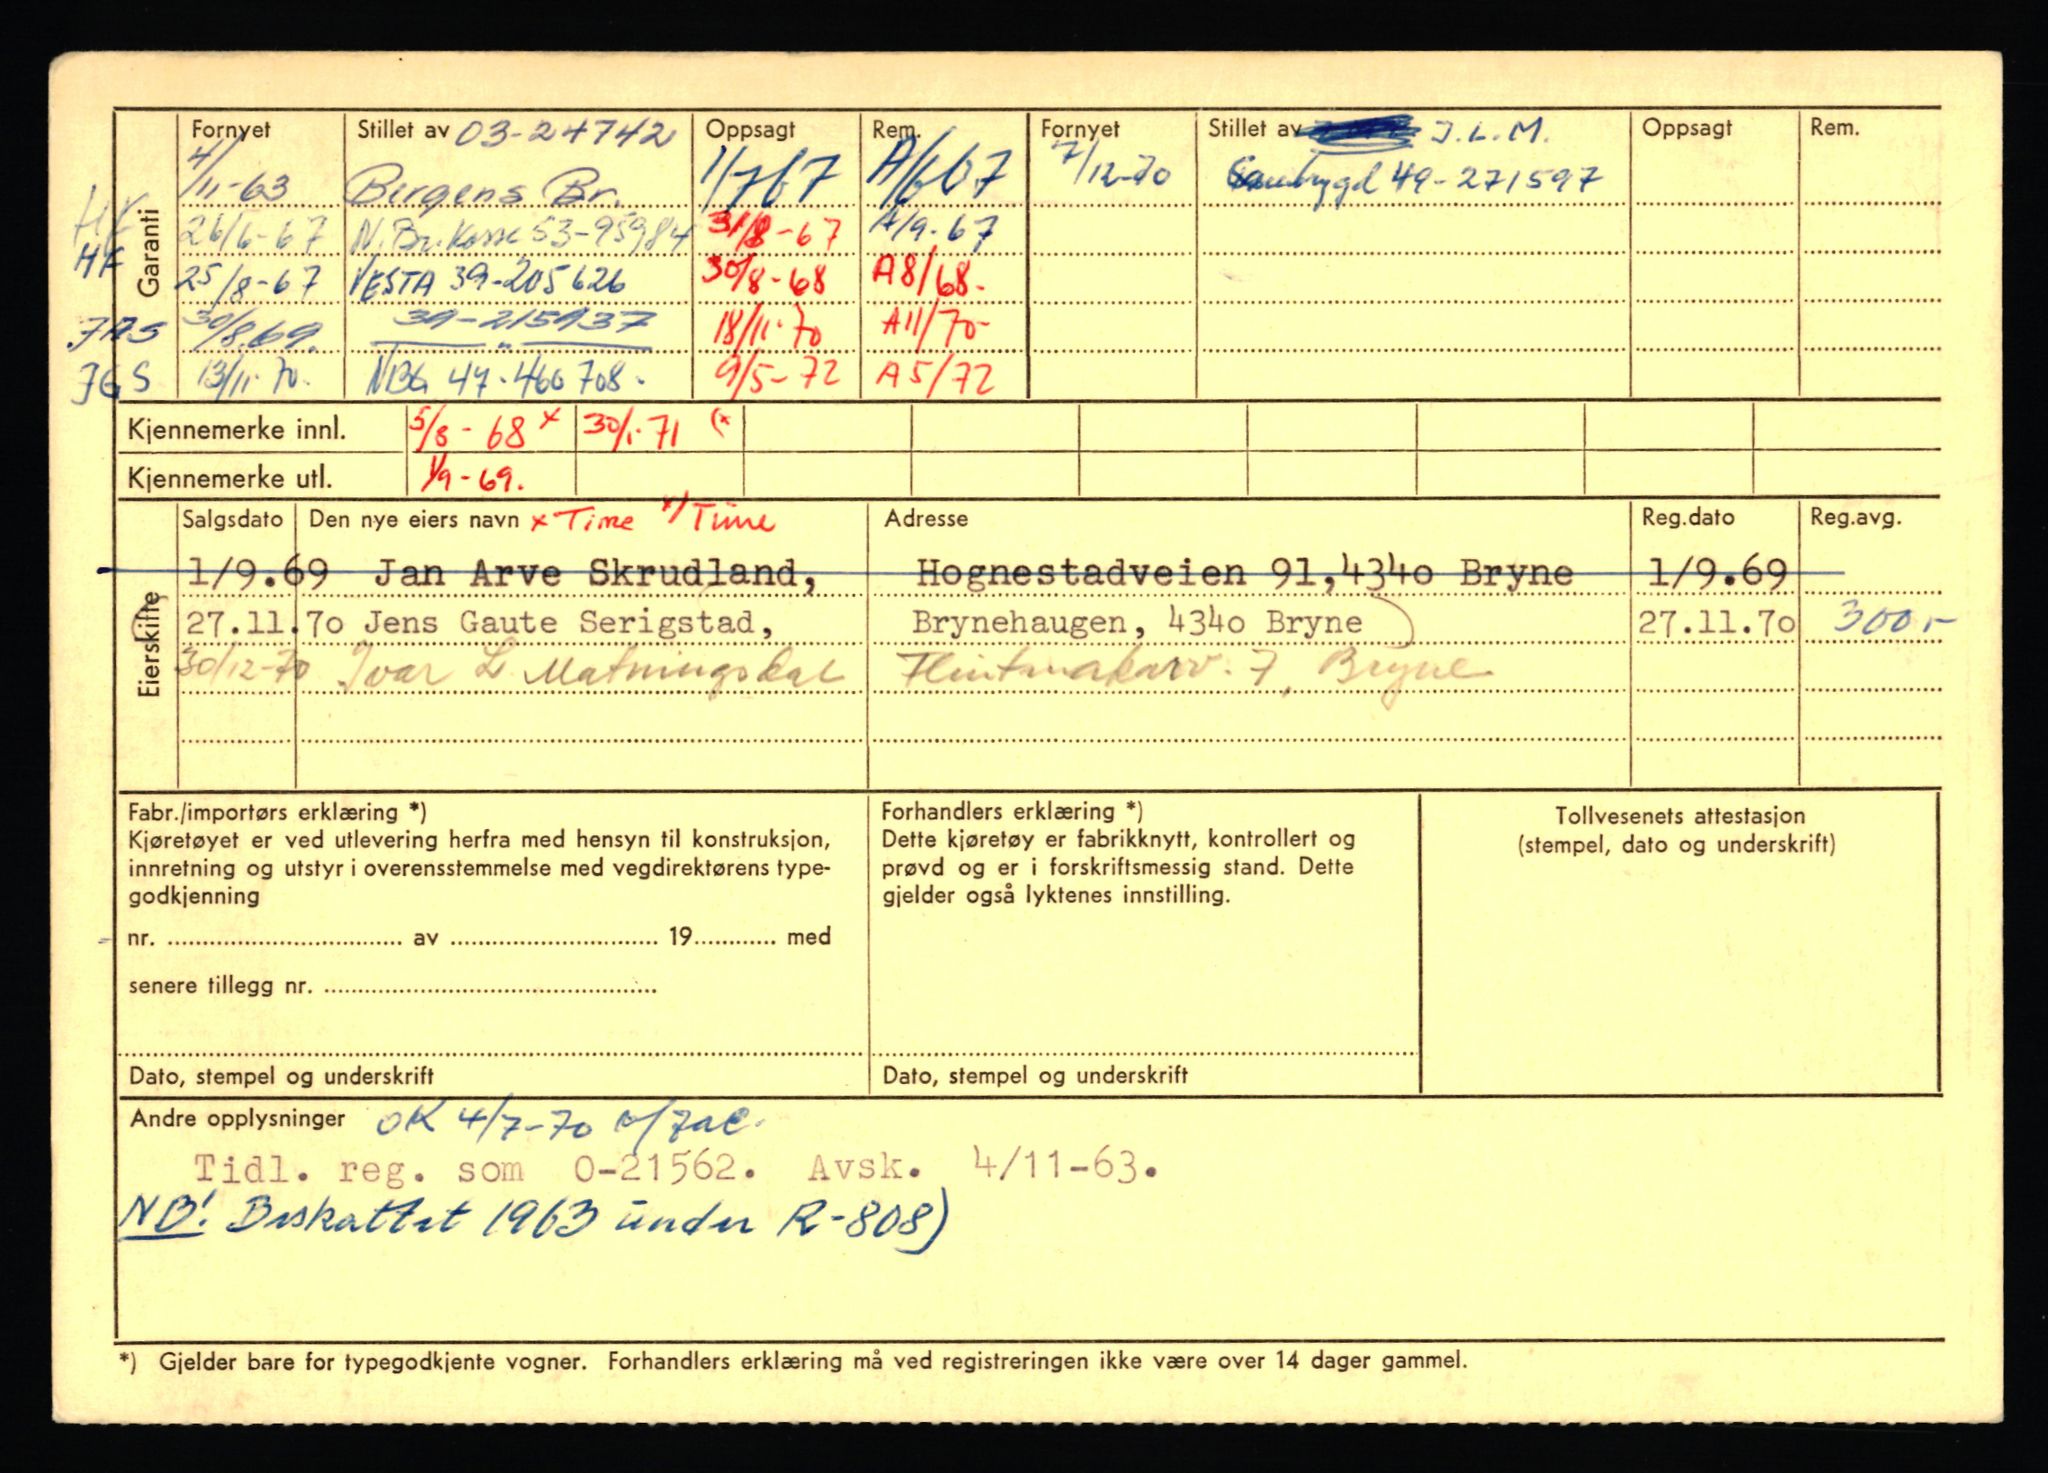 Fornyet Stillet av 03-24742 Oppsagt Rem. Fornyet Stillet av J.L.M. Oppsagt Rem.
4/11-63 Bergens Br. 1/7 67 A/6 67 7/12-70 49-271597
Garanti
26/6-67 N. Br. Kasse 53-95984 31/8-67 A/9-67
HF 25/8-67 VESTA 39-205626 30/8-68 A8/68-
30/8.69. 39-215937 18/11-70 A11/70-
JGS 13/11-70. NBG 47-460708. 9/5-72 A5/72
Kjennemerke innl. 5/8-68 x 30/1-71 (x
Kjennemerke utl. 1/9-69.
Salgsdato Den nye eiers navn x Time Time Adresse Reg.dato Reg.avg.
Eierskifte
1/9.69 Jan Arve Skrudland, Hognestadveien 91,4340 Bryne 1/9.69
27.11.70 Jens Gaute Serigstad, Brynehaugen, 4340 Bryne ) 27.11.70 300,-
30/12-70 Ivar L Matningsdal Flintmakarv. 7, Bryne
Fabr./importørs erklæring *)
Kjøretøyet er ved utlevering herfra med hensyn til konstruksjon,
innretning og utstyr i overensstemmelse med vegdirektørens type-
godkjenning
nr. .......... av .......... 19.......... med
senere tillegg nr. ..........
Dato, stempel og underskrift
Forhandlers erklæring *)
Dette kjøretøy er fabrikknytt, kontrollert og
prøvd og er i forskriftsmessig stand. Dette
gjelder også lyktenes innstilling.
Dato, stempel og underskrift
Tollvesenets attestasjon
(stempel, dato og underskrift)
Andre opplysninger OK 4/7-70
Tidl. reg. som O-21562. Avsk. 4/11-63.
NB! Beskattet 1963 under R-808)
*) Gjelder bare for typegodkjente vogner. Forhandlers erklæring må ved registreringen ikke være over 14 dager gammel.